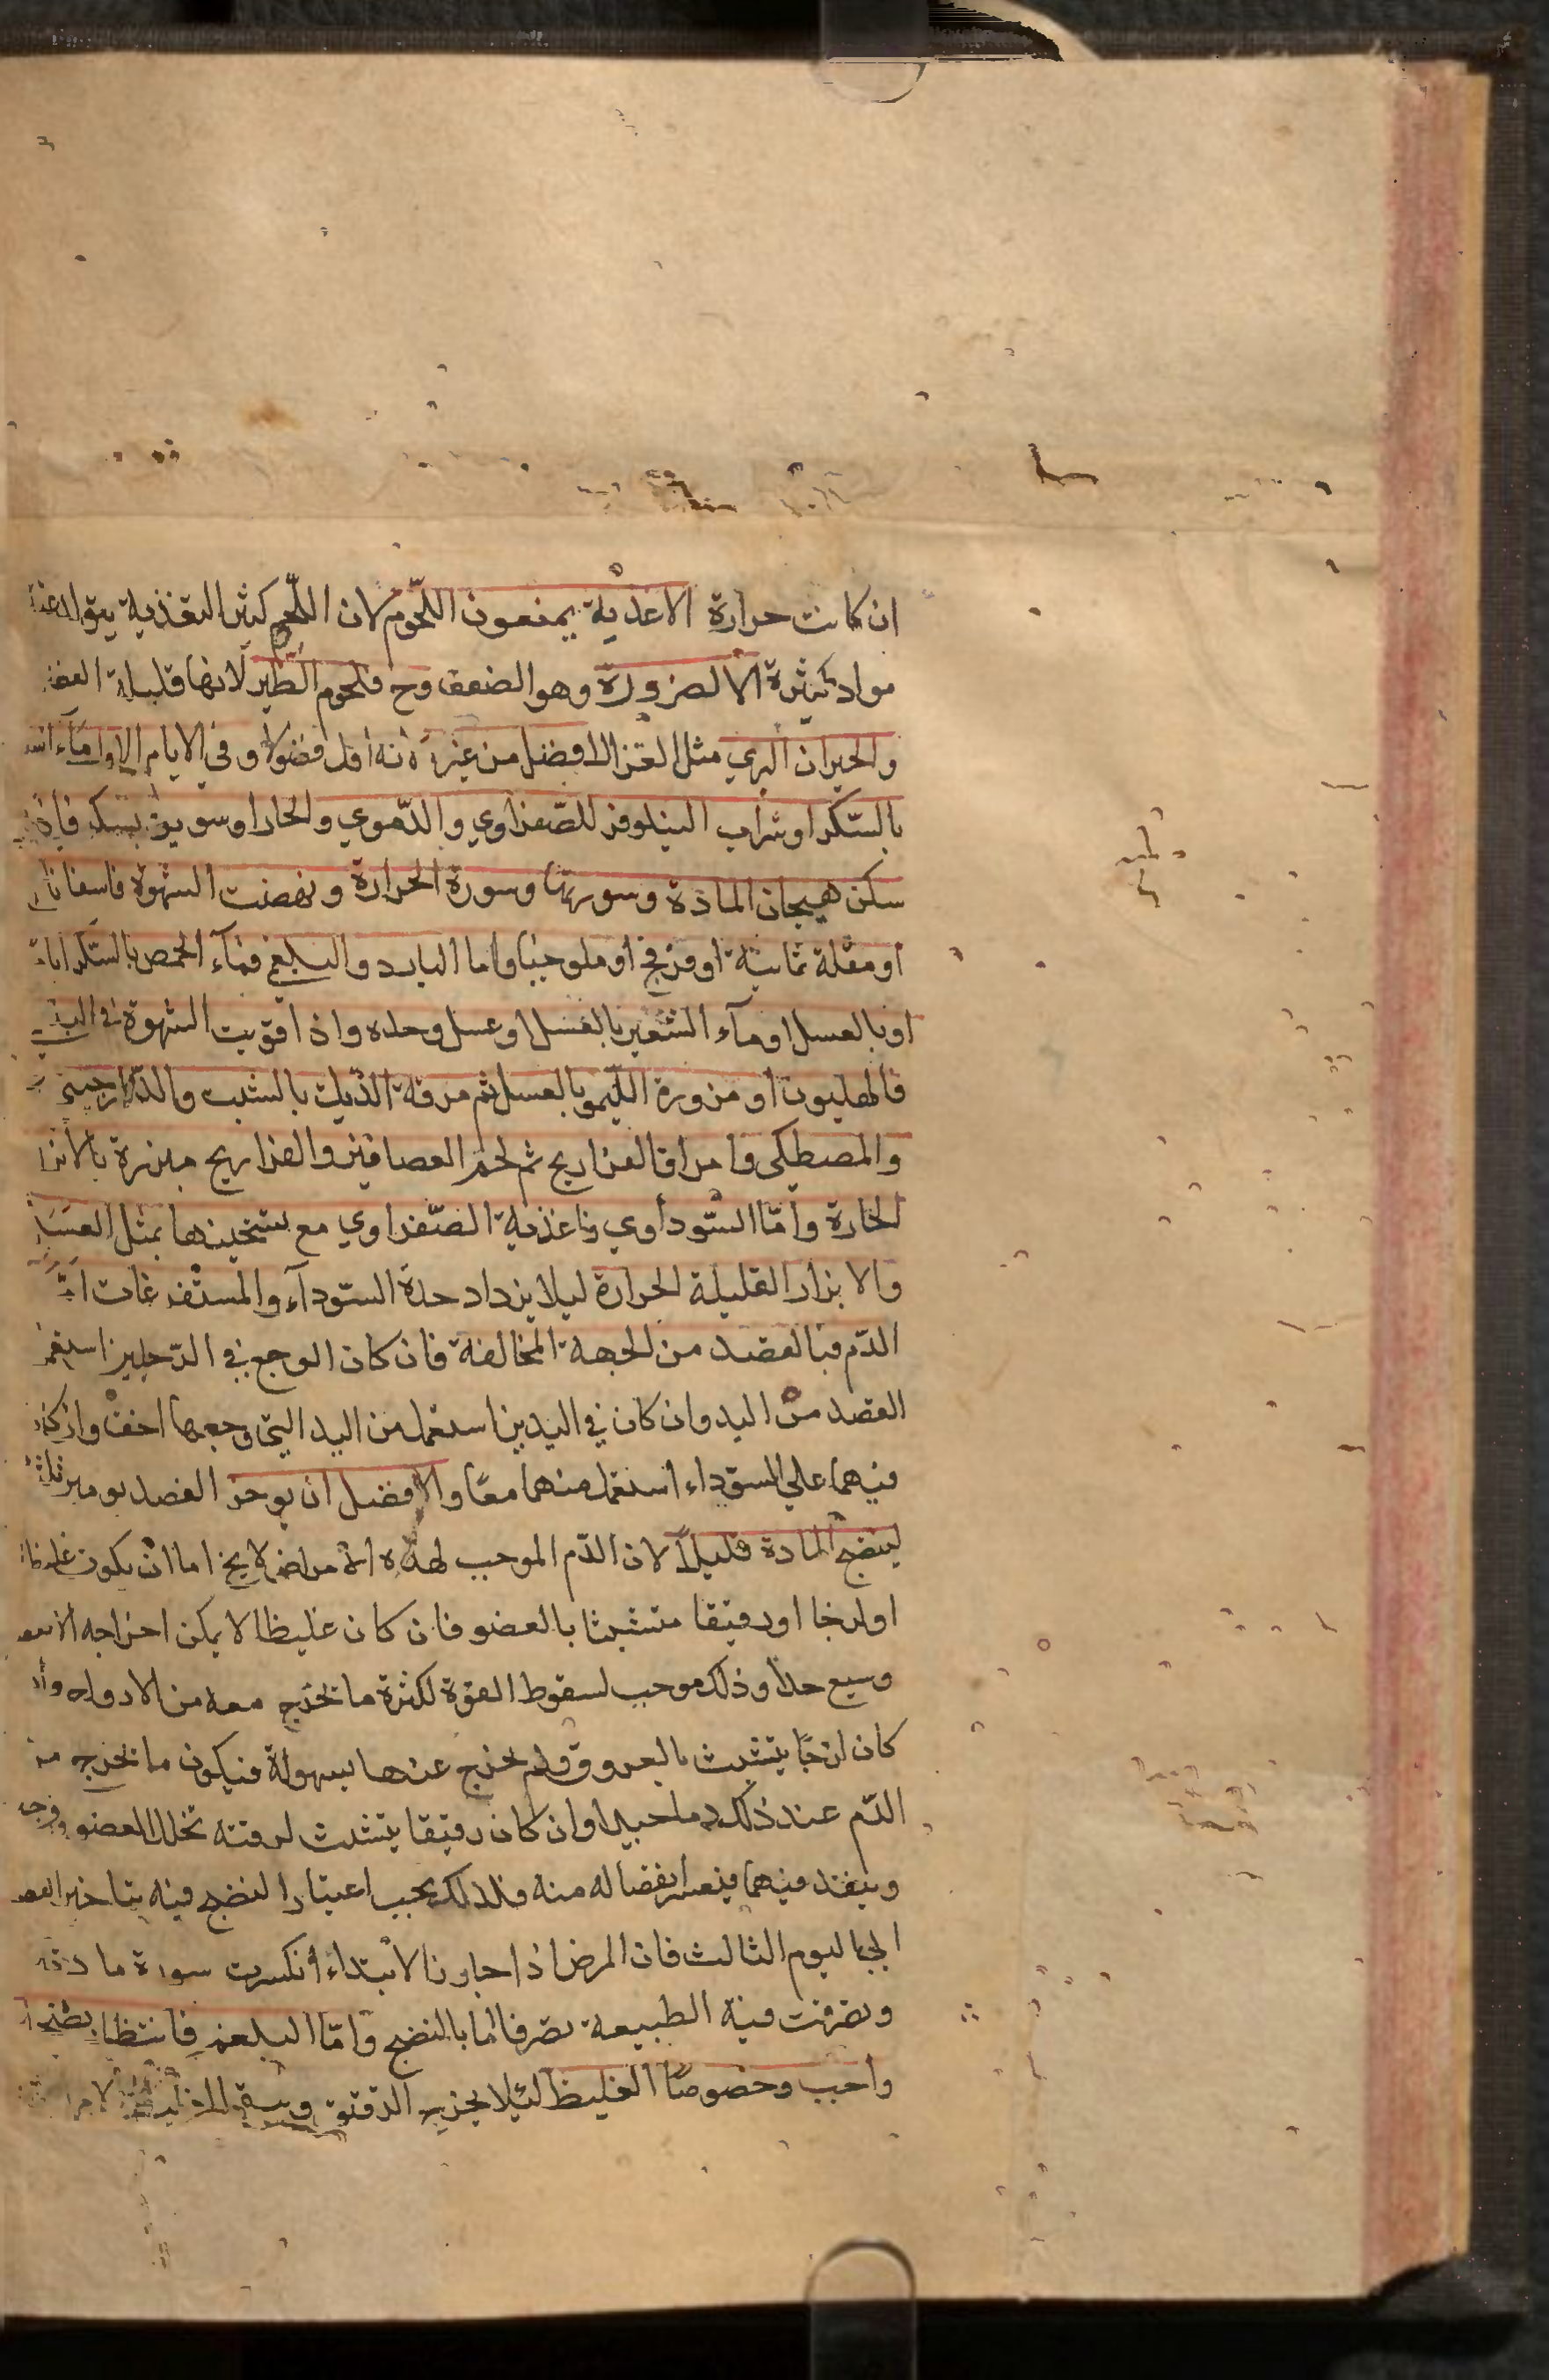 ان كانت حرارة الاغذية يمنعون اللّحوم لان اللّحم كثير التغذية يتولد عنه
مواد كثيرة الا لضرورة وهو الضعف وح فلحوم الطّير لانها قليلة الفضـ
والحيوان البري مثل الغزال افضل من غيره لانه اقل فضولا وفي الايام الاول مآء
بالسّكر او شراب النيلوفر للصّفراوي والدّموي والحار او سويق بسكر فاذا
سكن هيجان المادة وسورتها وسورة الحرارة ونهضت الشهوة فاسفاناخ
او مقلة ثمانية او فرفخ او ملوخيا واما البارد والبلغم فمآء الحمص بالسّكر
او بالعسل او مآء الشعير بالعسل او عسل وحده واذا قويت الشهوة في
فالهليون او مزورة الليمو بالعسل ثم مرقة الدّيك بالشبت والدّارجيني
والمصطكى وامراق الفراريج ثم لحم العصافير والفراريج مبزرة بالابزار
الحارة وامّا السّوداوي فاغذية الصّفراوي مع تسخينها بمثل العسل
والابزار القليلة الحرارة ليلا يزداد حدة السّودآء والمستفرغات امّا
الدّم فبالفصد من الجهة المخالفة فان كان الوجع في الرّجلين استعمل
الفصد من اليد وان كان في اليدين استعمل من اليد التي وجعها اخف وان كان
فيهما علي السّوداء استعمل منهما معًا والافضل ان يوخر الفصد يومين
لينضج المادة قليلاً لان الدّم الموجب لهذه الامراض لا يخ اما ان يكون غليظا
او لزجا او رقيقا متشبثا بالعضو فان كان غليظا لا يمكن اخراجه الا
وسيع جدا وذلك موجب لسقوط القوة لكثرة ما يخرج معه من الارواح وان
كان لزجًا يتشبث بالعروق فلم يخرج عنها بسهولة فيكون ما يخرج من
الدّم عند ذلك دما جيدا وان كان رقيقا يتشبث لرقته تخلل العضو
وينفذ فيهما فيعسر انفصاله منه فلذلك يجب اعتبار النضج فيه بتاخير الفصد
الي اليوم الثالث فان المرض اذا جاوز الابتداء انكسرت سورة مادته
وتصرفت فيه الطبيعة تصرفا ما بالنضج وامّا البلغم فانتظار نضجه
واجب وخصوصًا الغليظ لئلا يخرج الرقيق ويبقى الغليظ